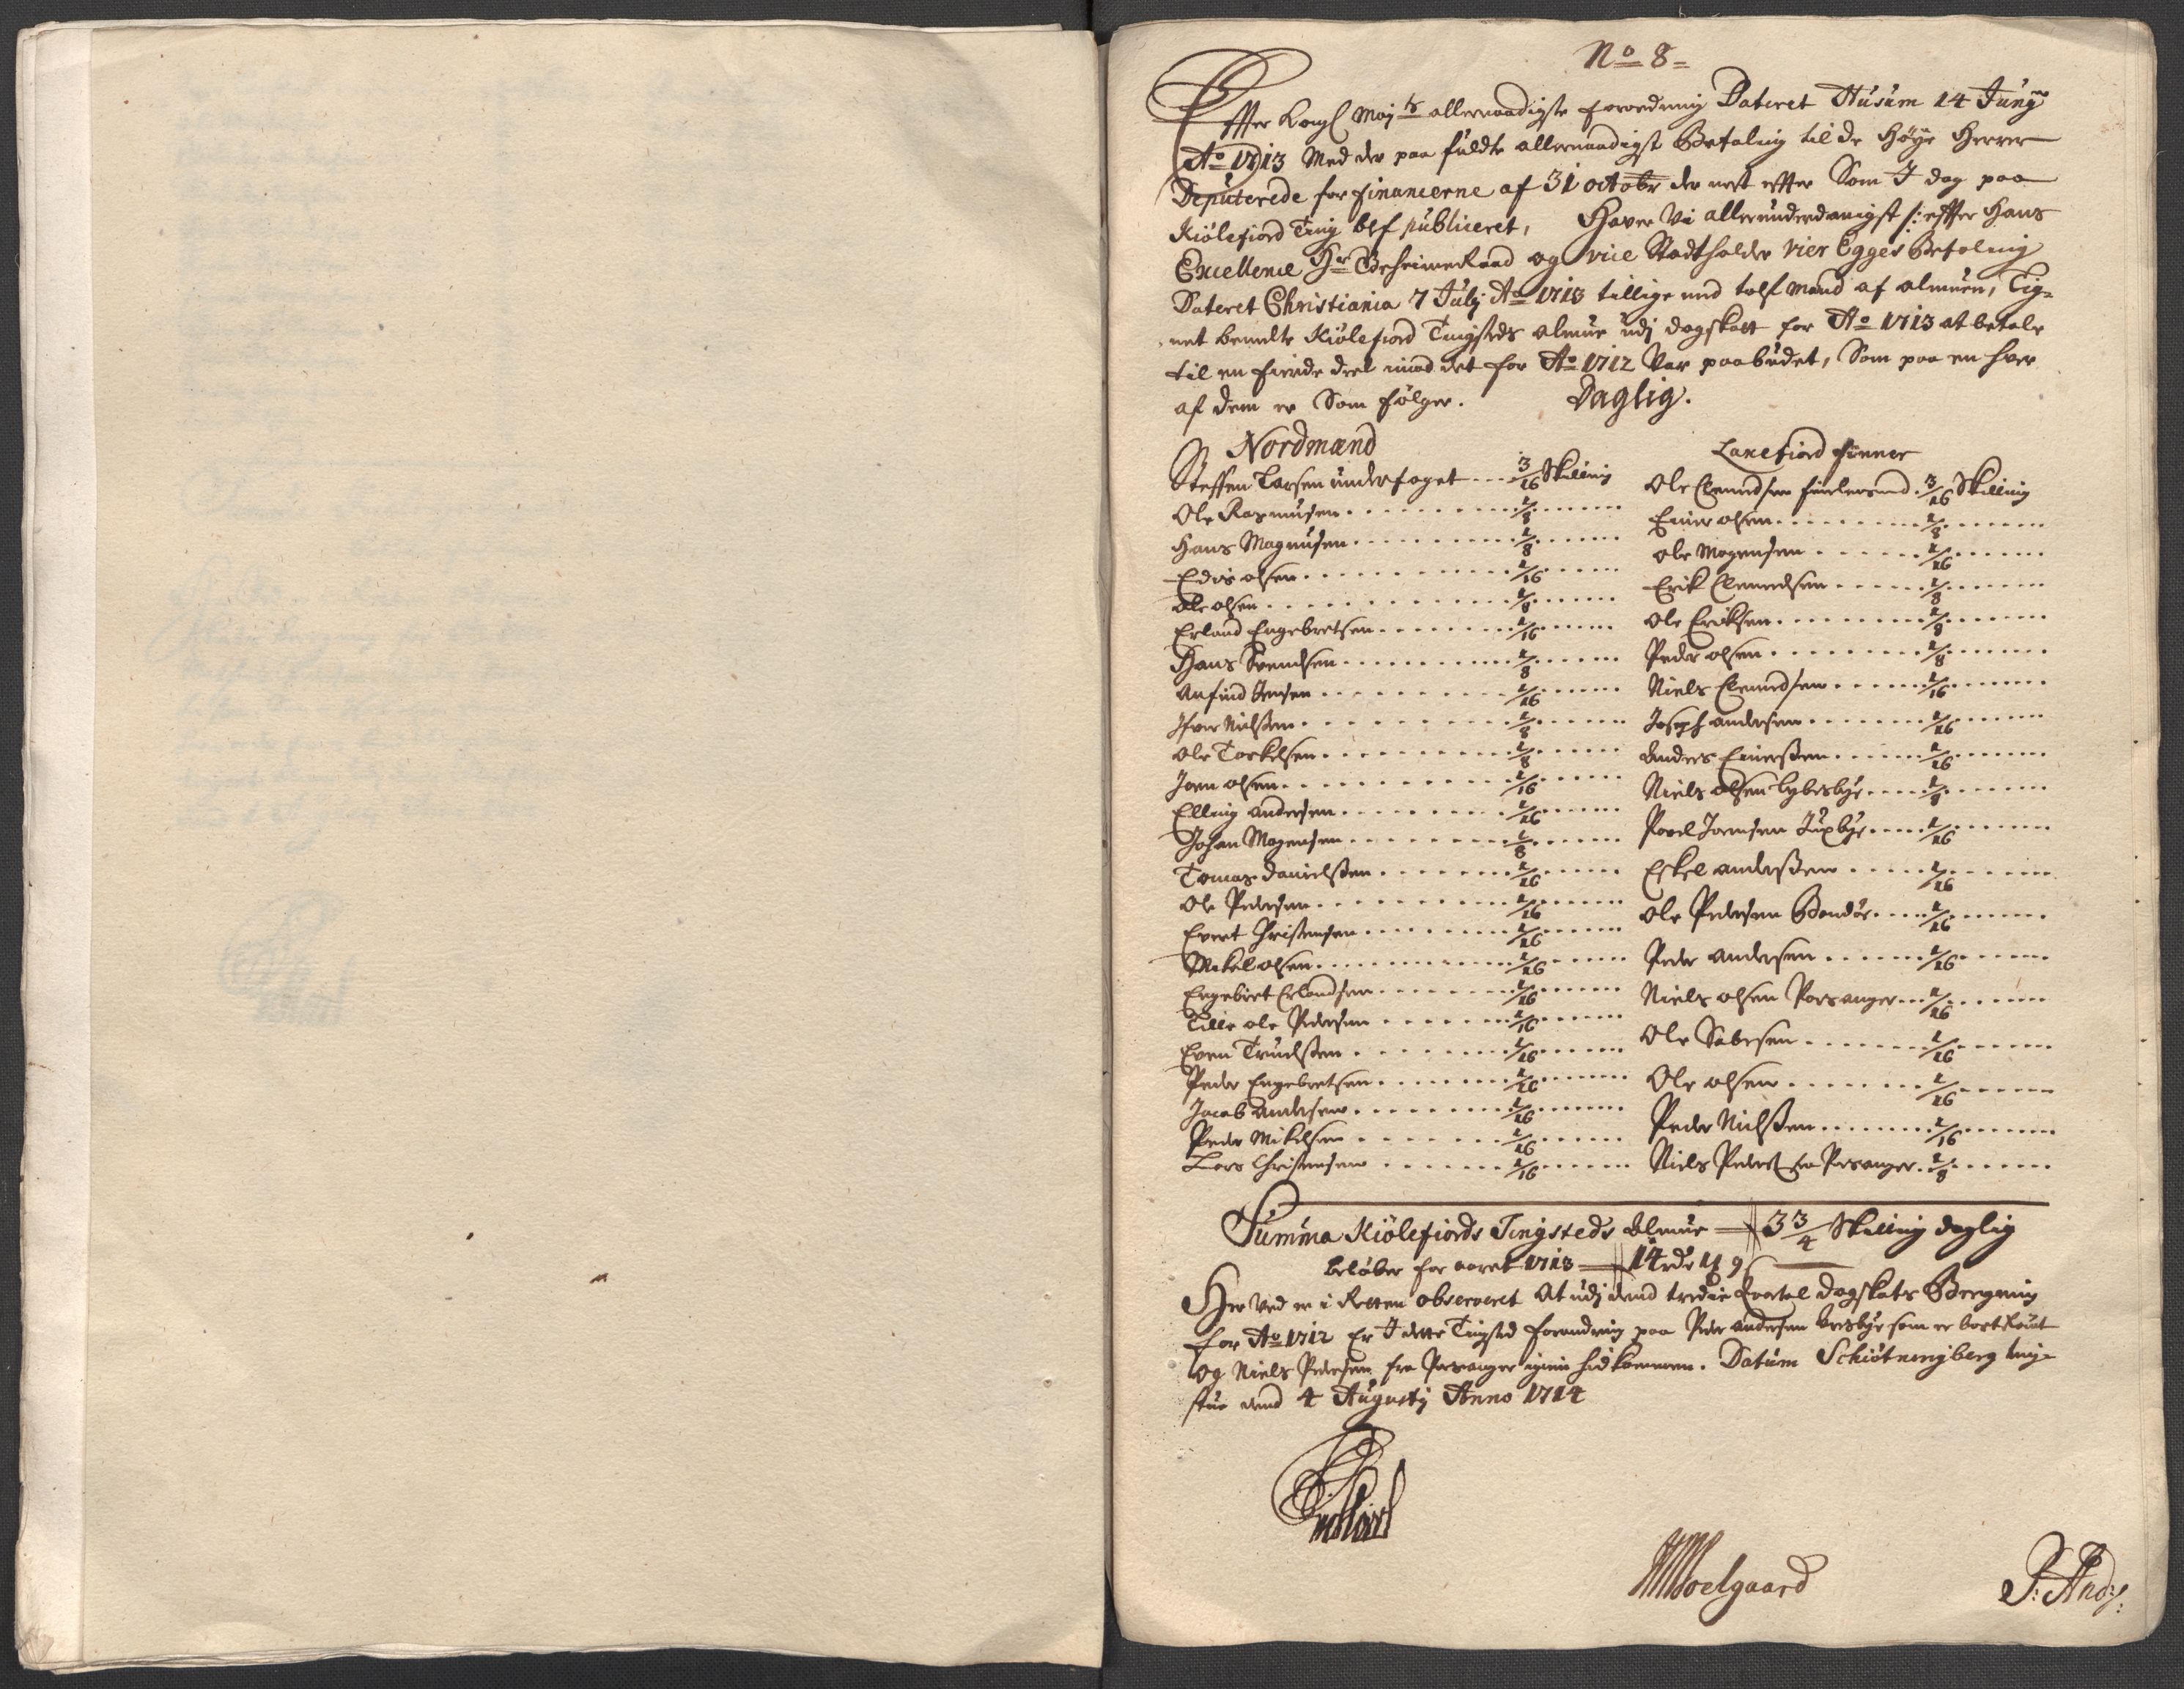 No 8
Effter Kongl Majts allernaadigste forordning Dateret Husum 14 Juny
Ao 1713 Med der paa fuldte allernaadigst Befaling til de Høye Herrer
Deputerede for financerne af 31 octobr der nest effter Som I dag paa
Kiölefiord Ting blef publiceret, Haver Vi allerunderdanigst /: effter Hans
Excellence Hr Geheime Raad og vice Stadtholder Vier Egges Befaling
Dateret Christiania 7 July Ao 1713 tillige med tolf Mand af almuen, Tig-
net bemelte Kiölefiord Tingsteds almue udj dagskatt for Ao 1713 at betale
til en fierde deel imod det for Ao 1712 Var paabudet, Som paa en hver
af dem er Som følger. Daglig.
Nordmænd
Steffen Larsen underfoget 3/16 Skilling
Ole Rasmusen 1/8
Hans Magnusen 1/8
Edis olsen 1/16
Ole olsen 1/8
Erland Engebretsen 1/16
Hans Svendsen 1/8
Arfind Jensen 1/16
Ifver Nielsen 1/8
Ole Torkelsen 1/8
Joen olsen 1/16
Elling andersen 1/16
Johan Mogensen 1/8
Tomas danielssen 1/16
Ole Pedersen 1/16
Evert Christensen 1/16
Mikel olsen 1/16
Engebret Erlandsen 1/16
Lille ole Pedersen 1/16
Even Truelssen 1/16
Peder Engebretsen 1/16
Jacob andersen 1/16
Peder Mikelsen 1/16
Lars Christensen 1/16
Laxefiord finner
Ole Clemedsen finlensmd 3/16 Skilling
Einer olsen 1/8
Ole Mogensen 1/16
Erik Clemedsen 1/8
Ole Eriksen 1/8
Peder olsen 1/8
Niels Clemedsen 1/16
Joseph andersen 1/16
Anders Einerssen 1/16
Niels olsen lybesbye 1/8
Povel Joensen 1/16
Eskel anderssen 1/16
Ole Pedersen 1/16
Peder andersen 1/16
Niels olsen Porsanger 1/16
Ole Sabesen 1/16
Ole olsen 1/16
Peder Nielssen 1/16
Niels Peders fra Porsanger 1/8
Summa Kiölefiords Tingsteds Almue 3 3/4 Skilling daglig
beløber for aaret 1713 14 rdr
Her ved er i Retten observeret At udj dend tredie Qvartal dagskats Beregning
for Ao 1712 Er I dette Tingsted forandring paa Peder andersen som er bort
og Niels Pedersen fra Porsanger igien hidkommen. Datum Schiötningberg ting-
stue dend 4 Augusty Anno 1714
Moelgaard
P: And: